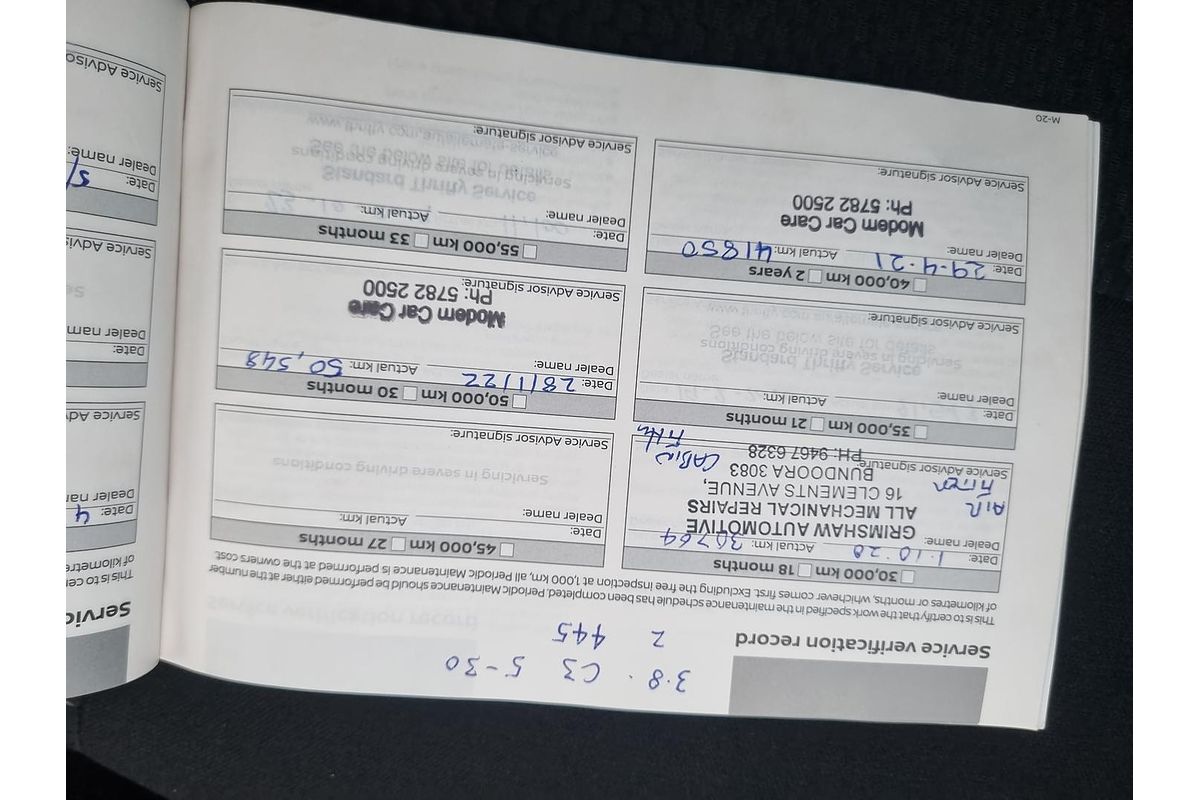 3.8 . C3 5-30
2 445
Service verification record
This is to certify that the work specified in the maintenance schedule has been completed. Periodic Maintenance should be performed either at the number
of kilometres or months, whichever comes first. Excluding the free inspection at 1,000 km, all Periodic Maintenance is performed at the owners cost.
30,000 km 18 months
Date: 1.10.20 Actual km: 30764
Dealer name:
GRIMSHAW AUTOMOTIVE
ALL MECHANICAL REPAIRS
16 CLEMENTS AVENUE,
BUNDOORA 3083
PH: 9467 6328
Service Advisor signature:
AIR
FILTER
CABIN
35,000 km 21 months
Date: Actual km:
Dealer name:
Standard Thrifty Service
Servicing in severe driving conditions
See the below site for details
Service Advisor signature:
40,000 km 2 years
Date: 29-4-21 Actual km: 41850
Dealer name:
Modern Car Care
Ph: 5782 2500
Service Advisor signature:
M-20
45,000 km 27 months
Date: Actual km:
Dealer name:
Servicing in severe driving conditions
Service Advisor signature:
50,000 km 30 months
Date: 28/1/22 Actual km: 50,548
Dealer name:
Modern Car Care
Ph: 5782 2500
Service Advisor signature:
55,000 km 33 months
Date: Actual km:
Dealer name:
Standard Thrifty Service
Servicing in severe driving conditions
See the below site for details
Service Advisor signature:
Servic
This is to cer
of kilometre
Date: 4
Dealer nar
Service Adv
Date:
Dealer nam
Service Advis
Date: 5/
Dealer name:
Service Advisor